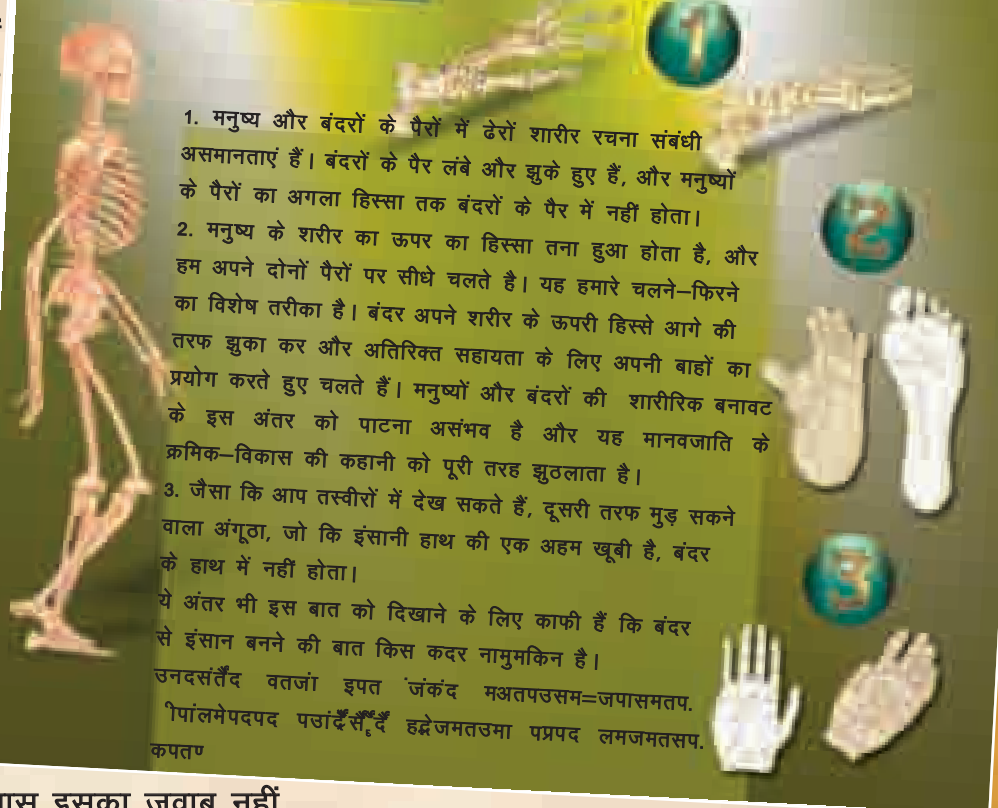 1
1. मनुष्य और बंदरों के पैरों में ढेरों शारीर रचना संबंधी
असमानताएं हैं। बंदरों के पैर लंबे और झुके हुए हैं, और मनुष्यों
के पैरों का अगला हिस्सा तक बंदरों के पैर में नहीं होता।
2. मनुष्य के शरीर का ऊपर का हिस्सा तना हुआ होता है, और
हम अपने दोनों पैरों पर सीधे चलते है। यह हमारे चलने–फिरने
का विशेष तरीका है। बंदर अपने शरीर के ऊपरी हिस्से आगे की
तरफ झुका कर और अतिरिक्त सहायता के लिए अपनी बाहों का
प्रयोग करते हुए चलते हैं। मनुष्यों और बंदरों की शारीरिक बनावट
के इस अंतर को पाटना असंभव है और यह मानवजाति के
क्रमिक–विकास की कहानी को पूरी तरह झुठलाता है।
3. जैसा कि आप तस्वीरों में देख सकते हैं, दूसरी तरफ मुड़ सकने
वाला अंगूठा, जो कि इंसानी हाथ की एक अहम खूबी है, बंदर
के हाथ में नहीं होता।
ये अंतर भी इस बात को दिखाने के लिए काफी हैं कि बंदर
से इंसान बनने की बात किस कदर नामुमकिन है।
वतजां इपत मअतपउसम=जपासमतप.
पप्रपद लमजमतसप.
कपतण
2
3
इसका जवाब नहीं